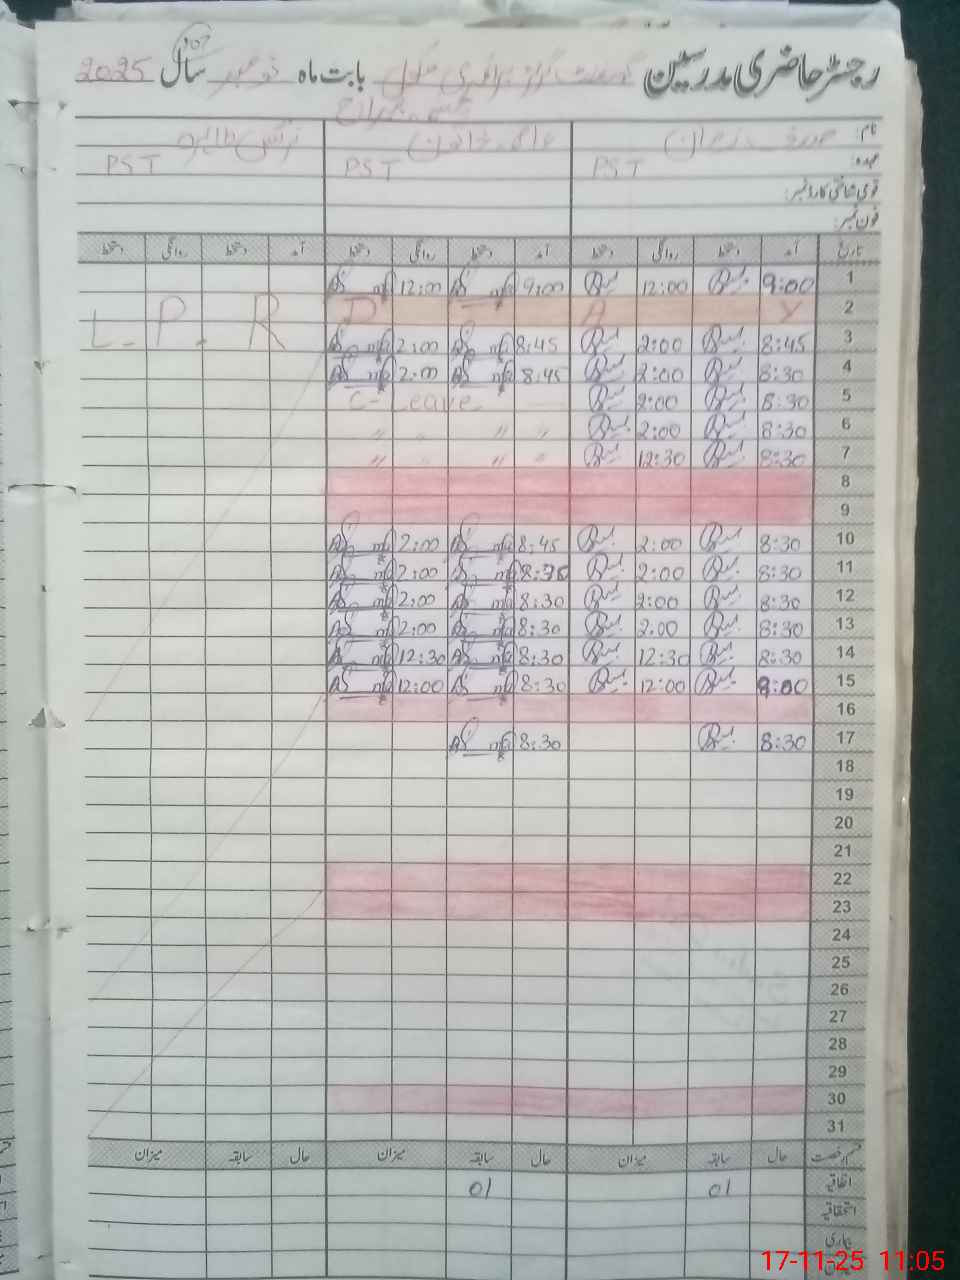 رجسٹر حاضری مدرسین گورنمنٹ گرلز پرائمری سکول بابت ماہ نومبر سال 2025
نام:
عہدہ: PST PST PST
قومی شناختی کارڈ نمبر:
فون نمبر:
تاریخ آمد دستخط روانگی دستخط آمد دستخط روانگی دستخط آمد دستخط روانگی دستخط
1 9:00 12:00 9:00 12:00
2 L.P.R D A Y
3 8:45 2:00 8:45 2:00
4 8:30 2:00 8:45 2:00
5 8:30 2:00 C-Leave
6 8:30 2:00 " " " "
7 8:30 12:30 " " " "
8
9
10 8:30 2:00 8:45 2:00
11 8:30 2:00 8:30 2:00
12 8:30 2:00 8:30 2:00
13 8:30 2:00 8:30 2:00
14 8:30 12:30 8:30 12:30
15 9:00 12:00 8:30 12:00
16
17 8:30 8:30
18
19
20
21
22
23
24
25
26
27
28
29
30
31
قسم رخصت حال سابقہ میزان حال سابقہ میزان حال سابقہ میزان
اتفاقیہ 01 01
استحقاقیہ
بیماری
17-11-25 11:05